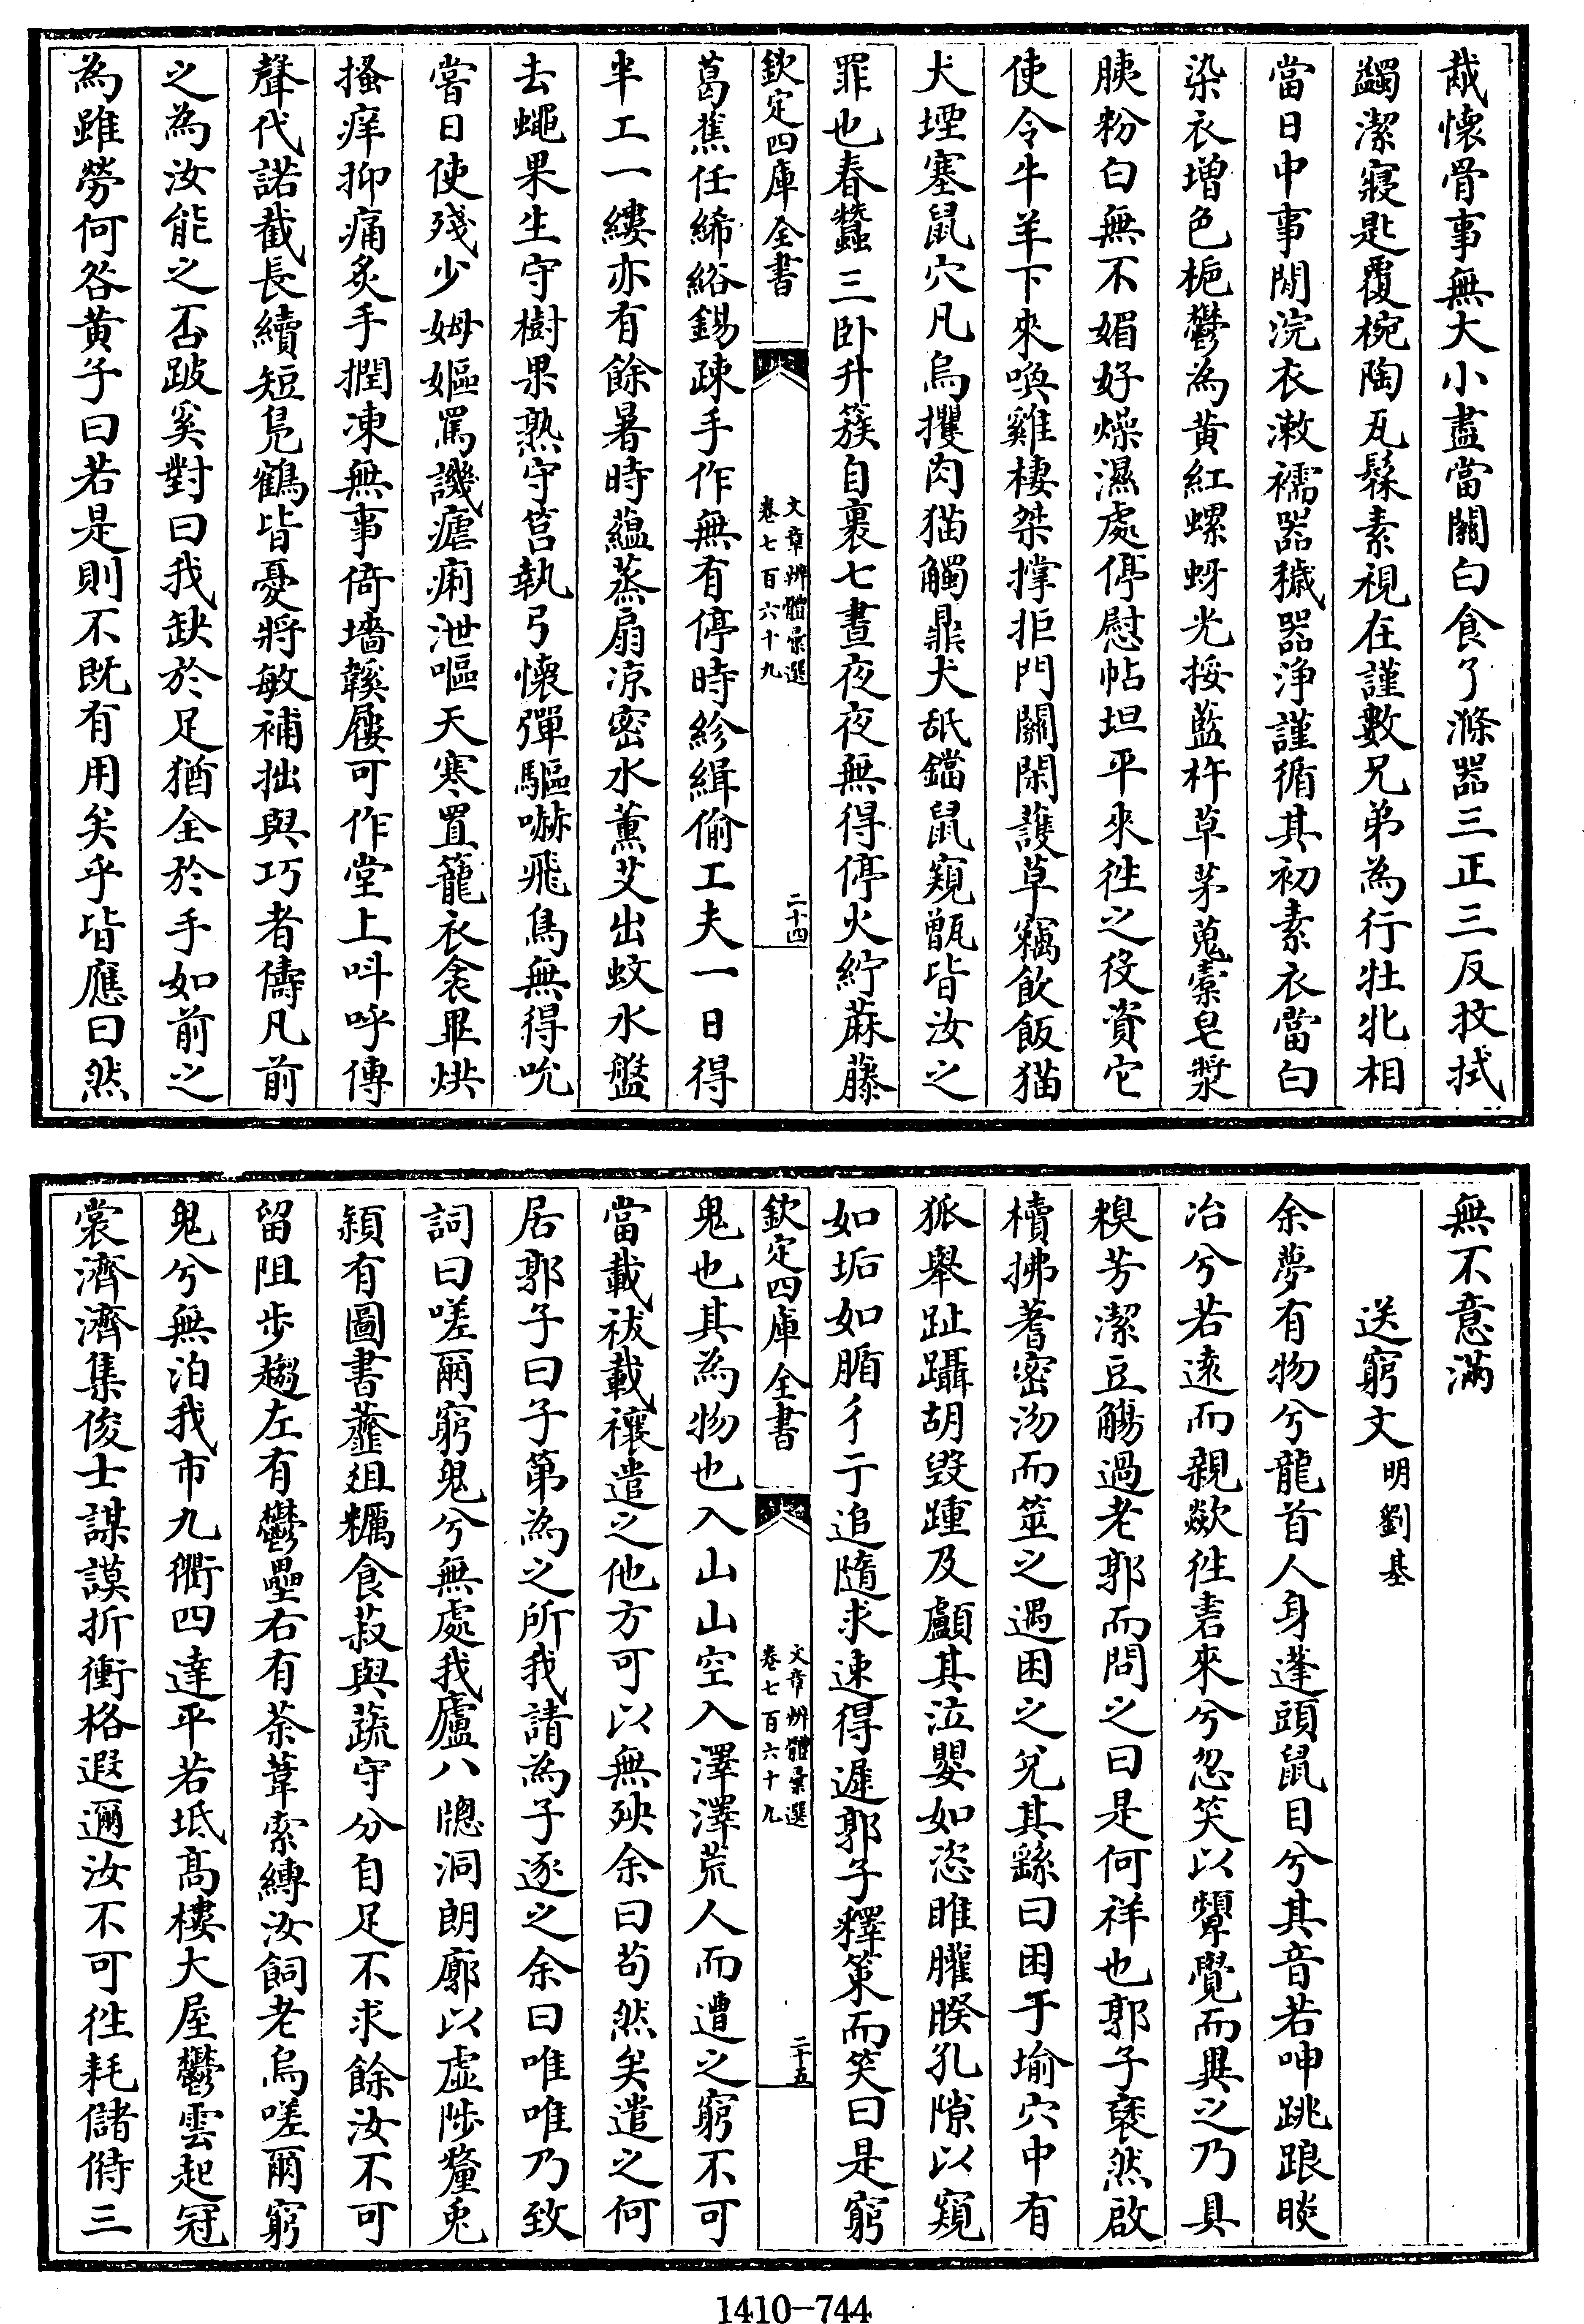 胾懷骨事無大小盡當關白食了滌器三正三反抆拭
蠲潔寢匙覆椀陶瓦髹素視在謹數兄弟為行牡牝相
當日中事閒浣衣漱襦器穢器浄謹循其初素衣當白
染衣増色梔鬱為黄紅螺蚜光挼藍杵草茅蒐橐皂漿
胰粉白無不媚好燥濕處停慰帖坦平來徃之役資它
使令牛羊下來喚雞棲桀撑拒門關閑護草竊飲飯猫
犬堙塞鼠穴凡烏攫肉猫觸鼎犬舐鐺鼠窺甑皆汝之
罪也春蠶三卧升簇自裹七晝夜夜無得停火紵蔴藤
欽定四庫全書
文章辨體彙選
卷七百六十九
二十四
葛蕉任絺綌錫疎手作無有停時紾緝偷工夫一日得
半工一縷亦有餘暑時蘊蒸扇凉密水薫艾出蚊水盤
去蠅果生守樹果熟守筥執弓懷彈驅嚇飛鳥無得吮
嘗日使殘少姆嫗罵譏瘧痢泄嘔天寒置籠衣衾畢烘
搔痒抑痛炙手捫凍無事倚墻鞵屨可作堂上呌呼傳
聲代諾截長續短鳬鶴皆憂將敏補拙與巧者儔凡前
之為汝能之否跛奚對曰我缺於足猶全於手如前之
為雖勞何咎黄子曰若是則不既有用矣乎皆應曰然
無不意滿
送窮文明劉基
余夢有物兮龍首人身蓬頭鼠目兮其音若呻跳踉睒
冶兮若逺而親歘徃砉來兮忽笑以顰覺而異之乃具
糗芳潔豆觴過老郭而問之曰是何祥也郭子裒然啟
櫝拂蓍密沕而筮之遇困之兌其繇曰困于堬穴中有
狐舉趾躡胡毀踵及顱其泣嬰如恣睢臛睽孔隙以窺
如垢如腯彳亍追隨求速得遲郭子釋策而笑曰是窮
欽定四庫全書
文章辨體彙選
卷七百六十九
二十五
鬼也其為物也入山山空入澤澤荒人而遭之窮不可
當載祓載禳遣之他方可以無殃余曰苟然矣遣之何
居郭子曰子第為之所我請為子逐之余曰唯唯乃致
詞曰嗟爾窮鬼兮無處我廬八牕洞朗廓以虚陟釐兎
頴有圖書虀爼糲食菽與蔬守分自足不求餘汝不可
留阻歩趨左有鬱壘右有荼葦索縛汝飼老烏嗟爾窮
鬼兮無泊我市九衢四達平若坻髙樓大屋鬱雲起冠
裳濟濟集俊士謀謨折衝格遐邇汝不可徃耗儲偫三
1410—744